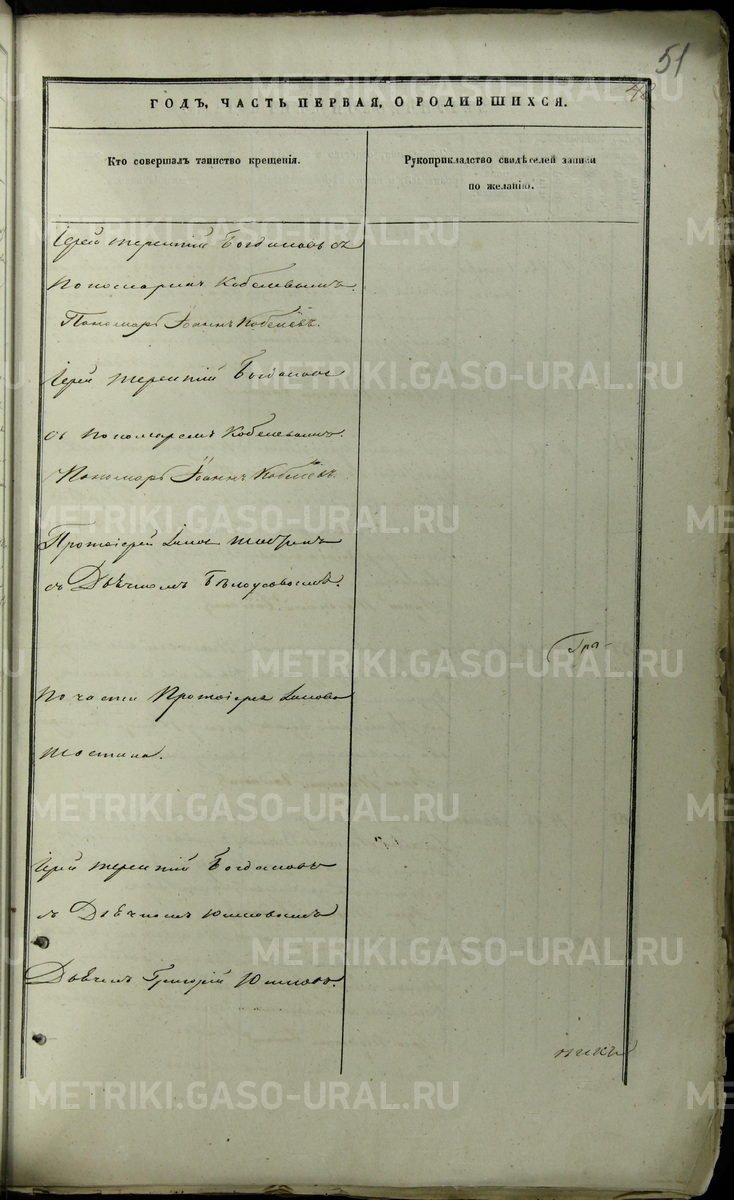 51
48
ГОДЪ, ЧАСТЬ ПЕРВАЯ, О РОДИВШИХСЯ.
Кто совершалъ таинство крещенія.
Рукоприкладство свидѣтелей записи
по желанію.
Іерей Терентій Богдановъ съ
Пономаремъ Кобелевымъ.
Пономарь Іоаннъ Кобелевъ.
Іерей Терентій Богдановъ
съ Пономаремъ Кобелевымъ.
Пономарь Іоаннъ Кобелевъ.
Протоіерей
съ Дьячкомъ Бѣлоусовымъ.
По части Протоіерея
Іерей Терентій Богдановъ
съ Дьячкомъ Юшковымъ
Дьячекъ Григорій Юшковъ.
METRIKI.GASO-URAL.RU